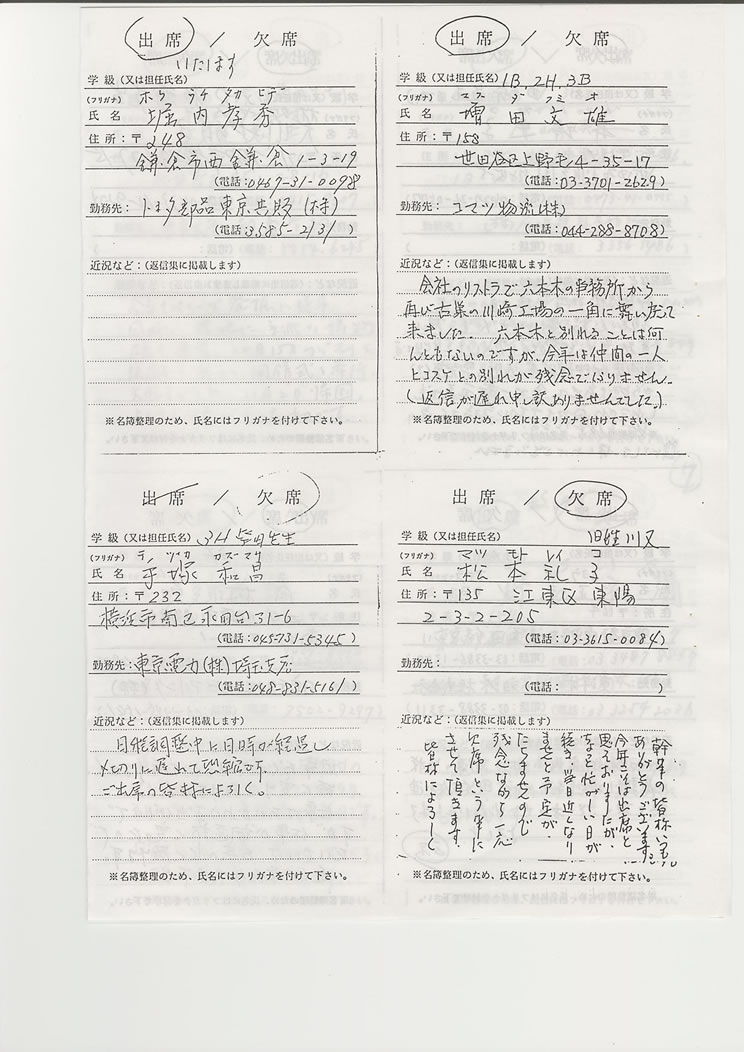 出席 / 欠席
いたします
学級(又は担任氏名)
(フリガナ) ホリ ウチ タカ ヒデ
氏名 堀内孝秀
住所:〒248
鎌倉市西鎌倉1-3-19
(電話:0467-31-0098
勤務先: トヨタ部品東京共販(株)
(電話:3585-2131 )
近況など:(返信集に掲載します)
※名簿整理のため、氏名にはフリガナを付けて下さい。
出席 / 欠席
学級(又は担任氏名) 1B, 2H, 3B
(フリガナ) マス ダ フミ オ
氏名 増田文雄
住所:〒158
世田谷区上野毛4-35-17
(電話:03-3701-2629)
勤務先: コマツ物流(株)
(電話:044-288-8708)
近況など:(返信集に掲載します)
会社のリストラで六本木の事務所から
再び古巣の川崎工場の一角に舞い戻って
来ました。六本木と別れることは何
んともないのですが、今年は仲間の一人
ヒコスケとの別れが残念でなりません。
(返信が遅れ申し訳ありませんでした。)
※名簿整理のため、氏名にはフリガナを付けて下さい。
出席 / 欠席
学級(又は担任氏名) 3H 柴田先生
(フリガナ) テ ヅカ カズ マサ
氏名 手塚和昌
住所:〒232
横浜市南区永田台31-6
(電話:045-731-5345)
勤務先: 東京電力(株)埼玉支店
(電話:048-831-5161)
近況など:(返信集に掲載します)
日程調整中に日時が経過し
〆切りに遅れて恐縮です。
ご出席の皆様によろしく。
※名簿整理のため、氏名にはフリガナを付けて下さい。
出席 / 欠席
学級(又は担任氏名) 旧姓川又
(フリガナ) マツ モト レイ コ
氏名 松本礼子
住所:〒135 江東区東陽
2-3-2-205
(電話:03-3615-0084)
勤務先:
(電話: )
近況など:(返信集に掲載します)
幹事の皆様いつも
ありがとうございます。
今年こそは出席と
思っておりましたが、
なっと忙がしい日が
続き、当日近くなり
ませんと予定が
たちませんので
残念ながら一応
欠席という事に
させて頂きます。
皆様によろしく
※名簿整理のため、氏名にはフリガナを付けて下さい。